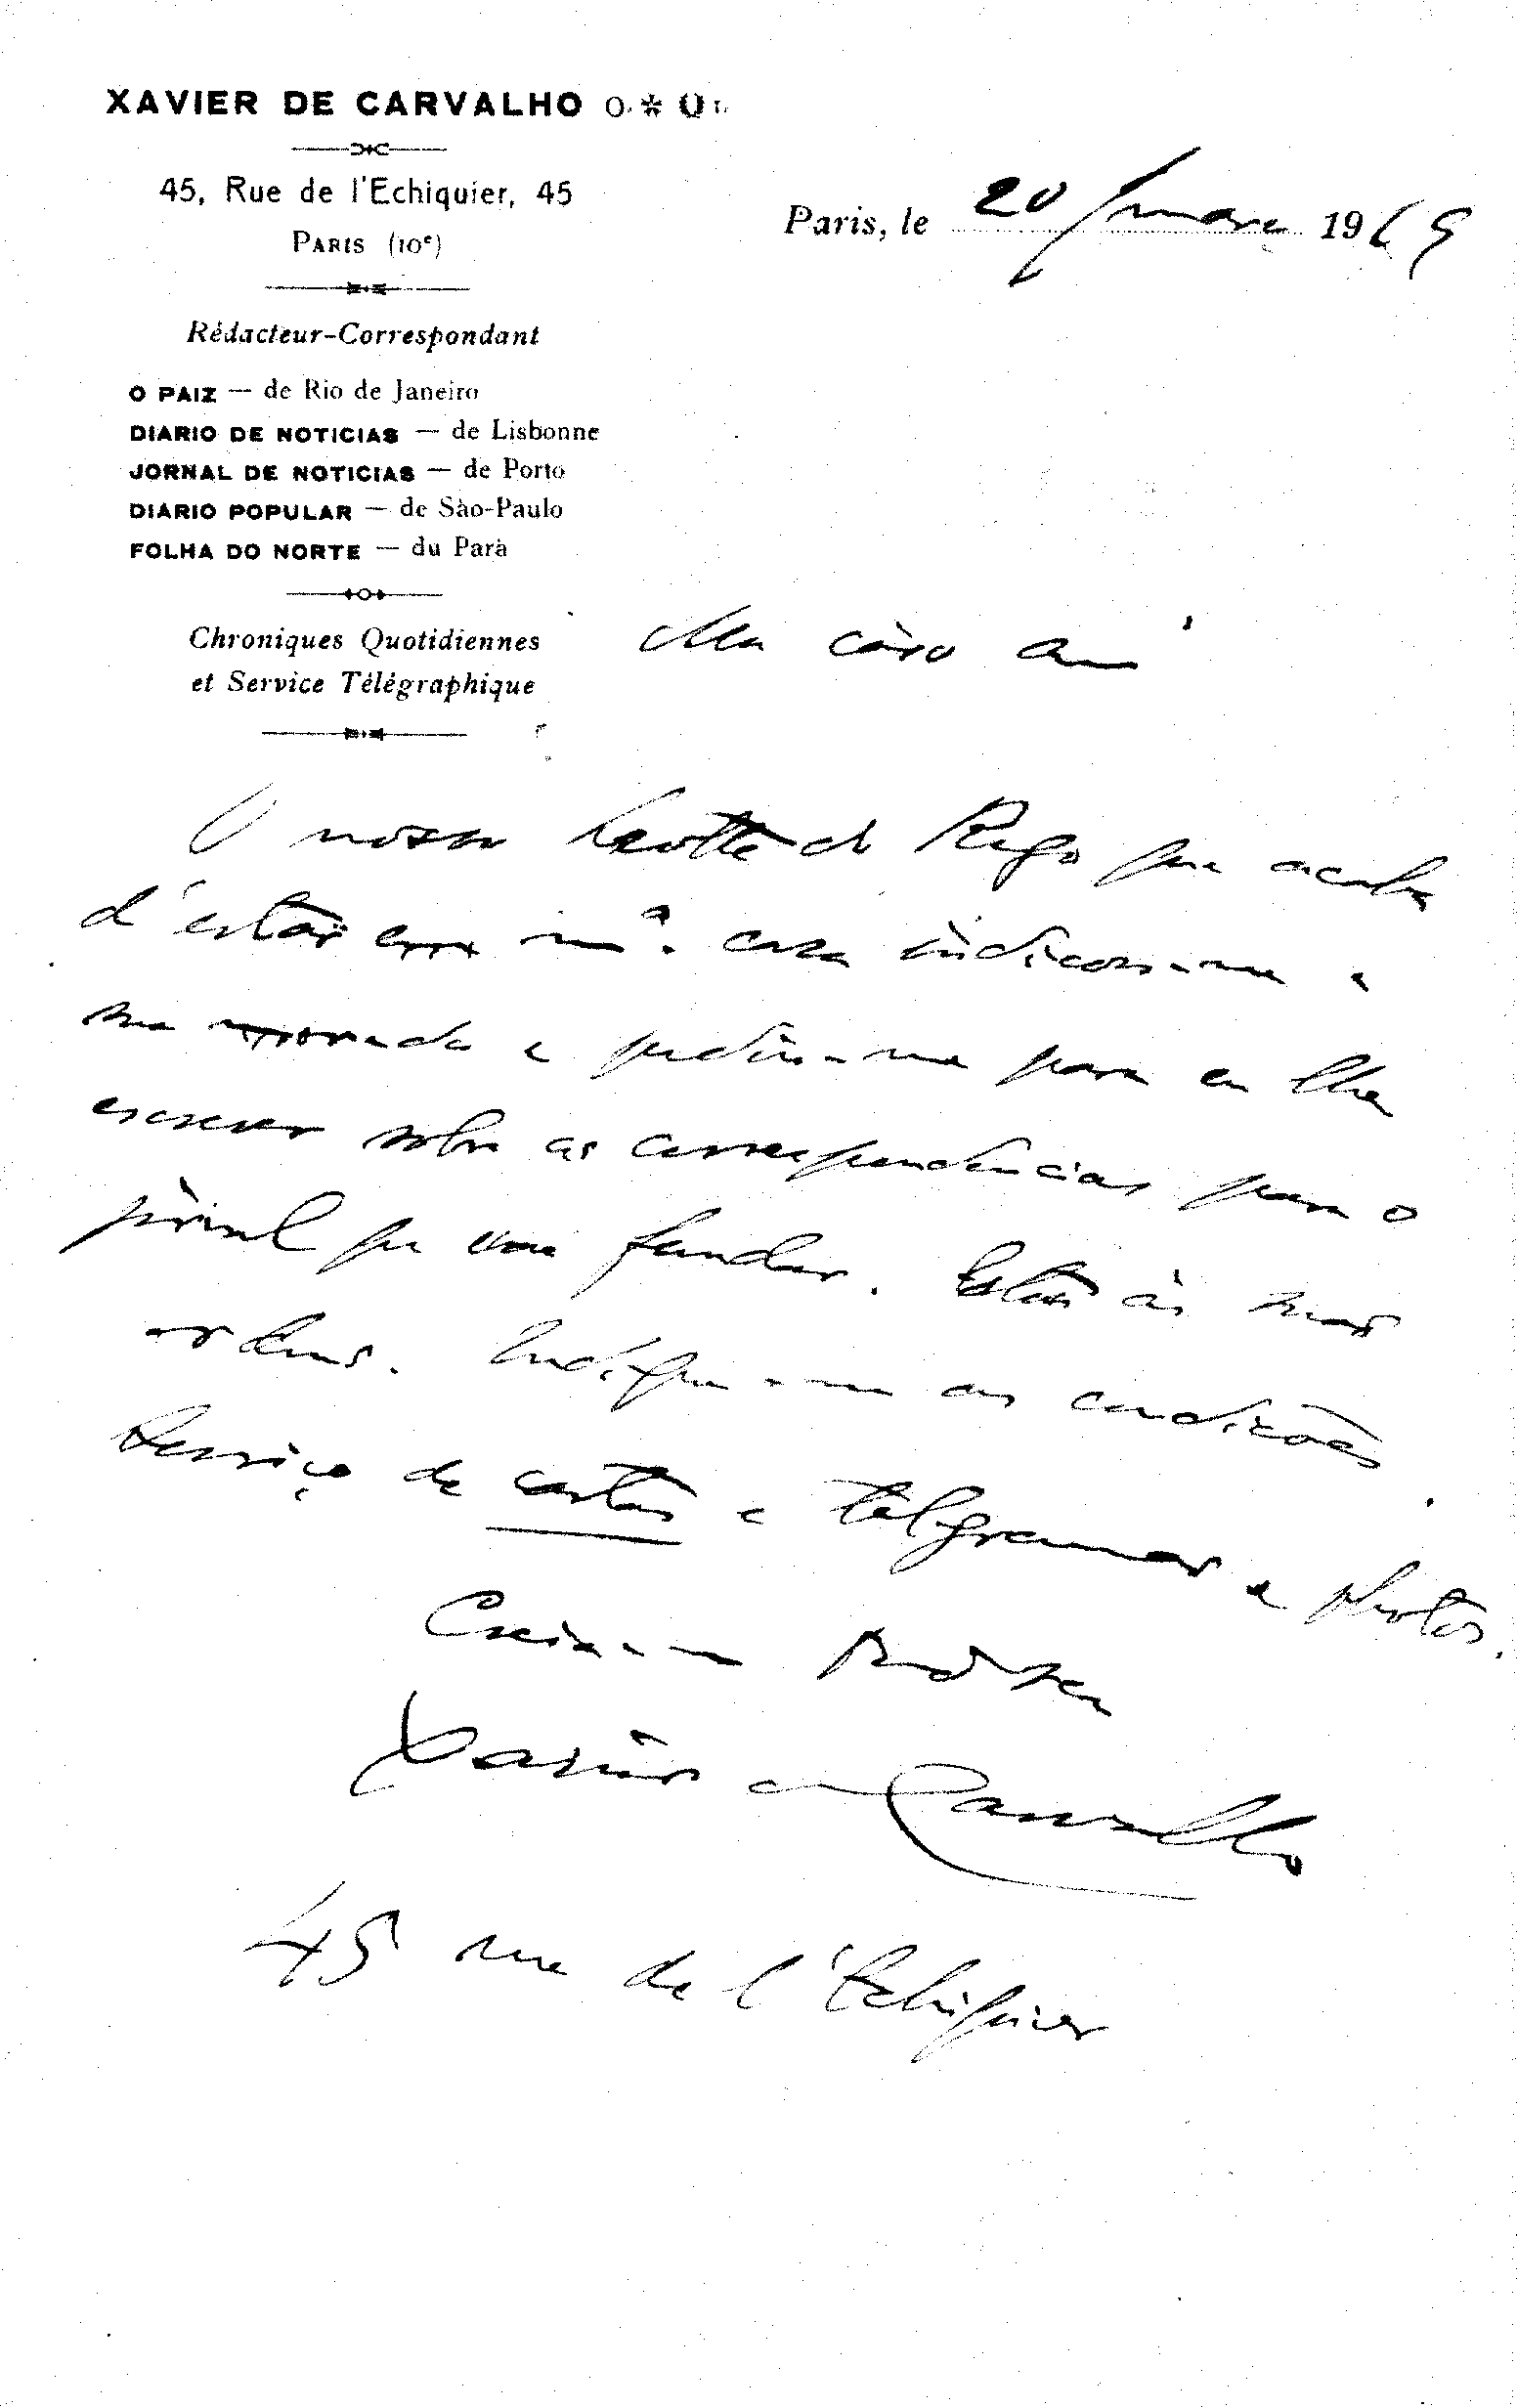 XAVIER DE CARVALHO
45, Rue de l'Echiquier, 45
PARIS (10e)
Paris, le 20/março 1919
Rédacteur-Correspondant
O PAIZ — de Rio de Janeiro
DIARIO DE NOTICIAS — de Lisbonne
JORNAL DE NOTICIAS — de Porto
DIARIO POPULAR — de São-Paulo
FOLHA DO NORTE — du Parà
Chroniques Quotidiennes
et Service Télégraphique
Meu caro am
O nosso Leotte do Rego que acaba
d'estar em mª. casa indicou-me a
sua morada e pediu-me para eu lhe
escrever sobre as correspondencias para o
jornal que vai fundar. Estou às suas
ordens. Indique-me as condições
Serviço de cartas e telegramas e photos.
Creia-me
Xavier de Carvalho
45 rue de l'Echiquier